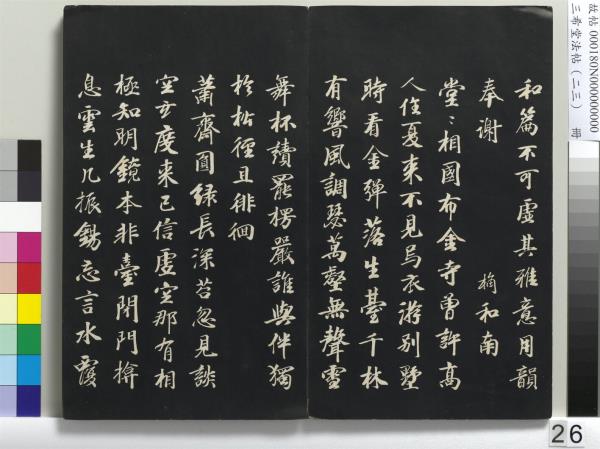 故帖 000180N000000000
三希堂法帖（二三） 冊
和篇不可虛其雅意用韻
奉謝 和南
堂〻相國布金寺曾許高
人住夏來不見烏衣游別墅
時看金彈落生臺千林
有響風調瑟萬壑無聲雪
舞杯讀罷楞嚴誰與伴獨
於松徑且徘徊
蕭齋圓綠長深苔忽見談
空玄度來已信虛空那有相
極知明鏡本非臺閉門揜
息雲生几振錫忘言水覆
26